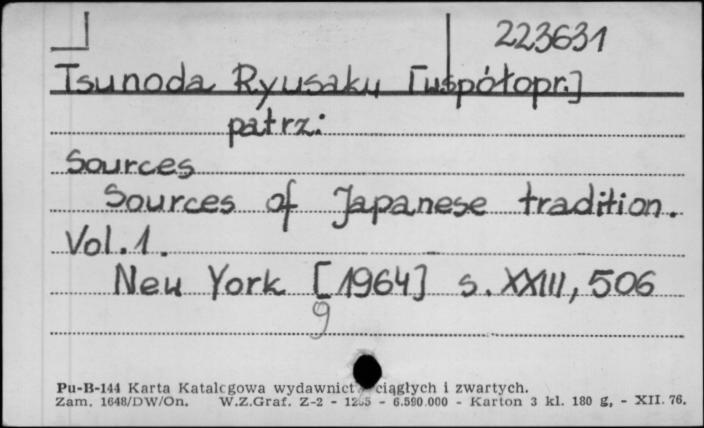 223631
Tsunoda Ryusaku [współopr.]
patrz:
Sources
Sources of Japanese tradition.
Vol. 1.
New York [1964] s. XXIII, 506
g
Pu-B-144 Karta Katalogowa wydawnict ciągłych i zwartych.
Zam. 1648/DW/On. W.Z.Graf. Z-2 - - 6.590.000 - Karton 3 kl. 180 g, - XII. 76.